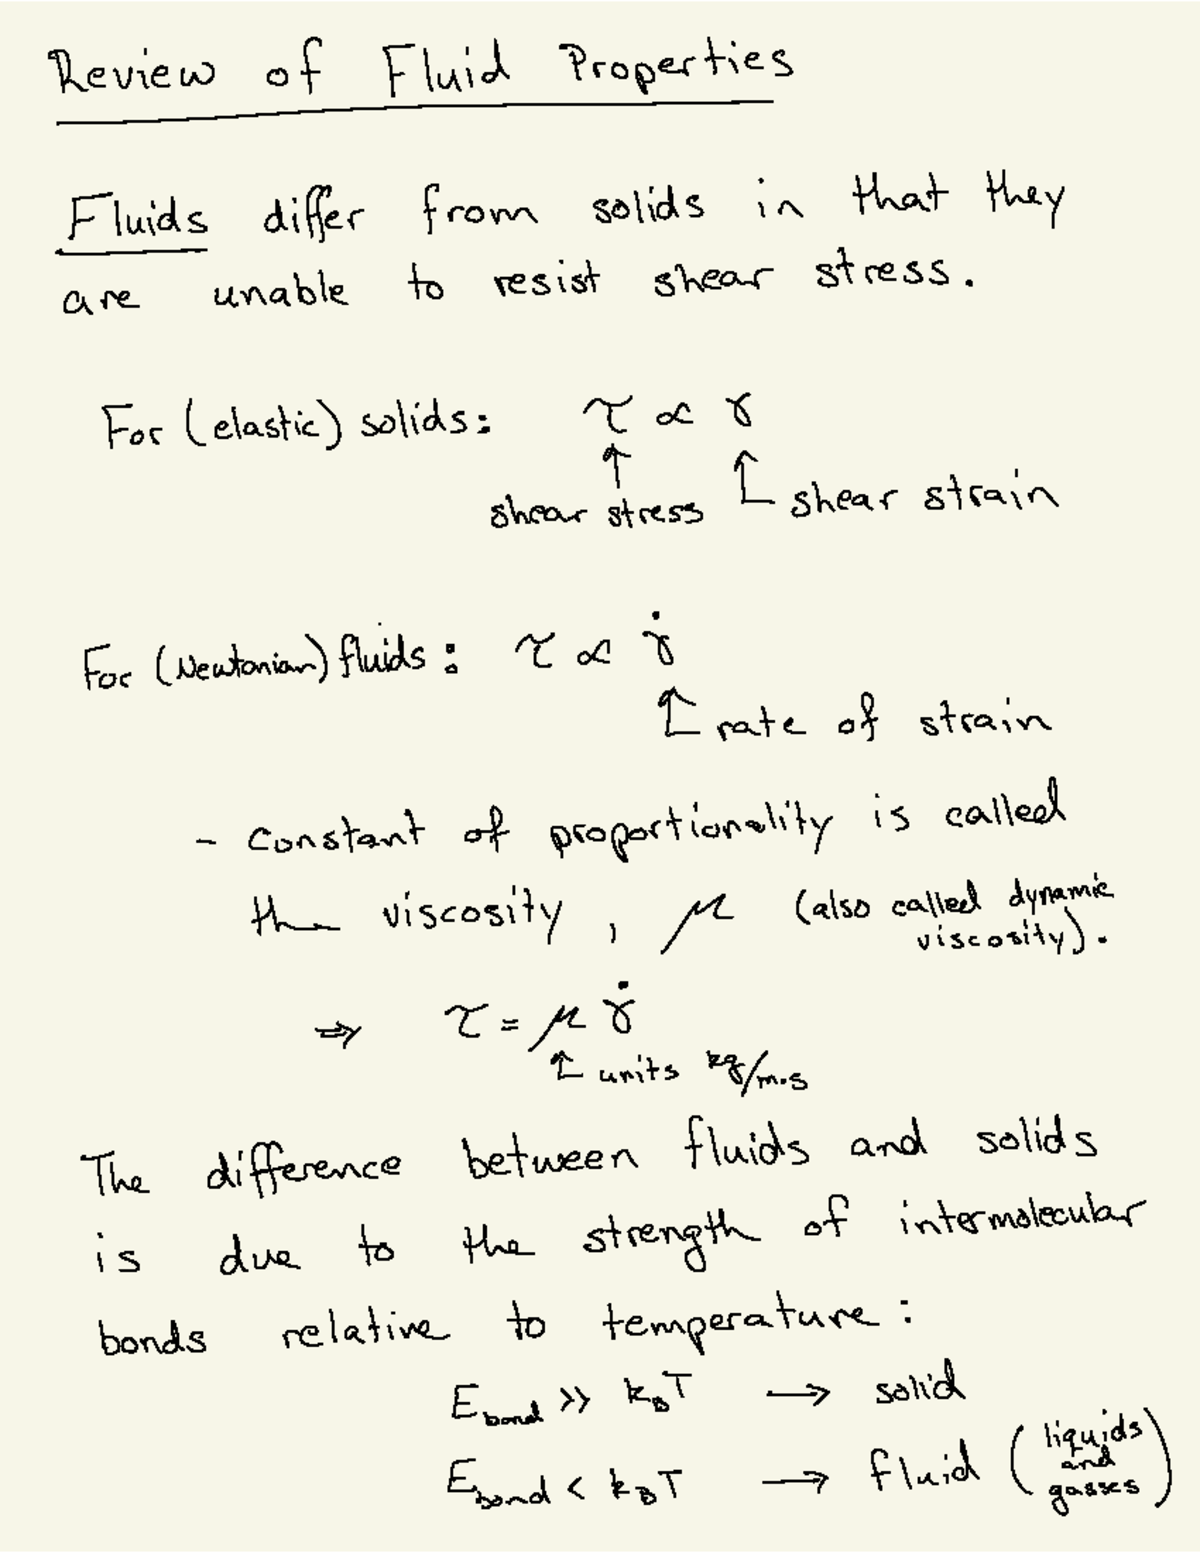 Review of Fluid Properties
Fluids differ from solids in that they
are unable to resist shear stress.
For (elastic) solids: τ ∝ γ
↑ shear stress ↑ shear strain
For (Newtonian) fluids: τ ∝ γ̇
↑ rate of strain
- Constant of proportionality is called
the viscosity, μ (also called dynamic
viscosity).
⇒ τ = μ γ̇
↑ units kg/m·s
The difference between fluids and solids
is due to the strength of intermolecular
bonds relative to temperature:
E_bond >> k_B T → solid
E_bond < k_B T → fluid (liquids
and
gasses)